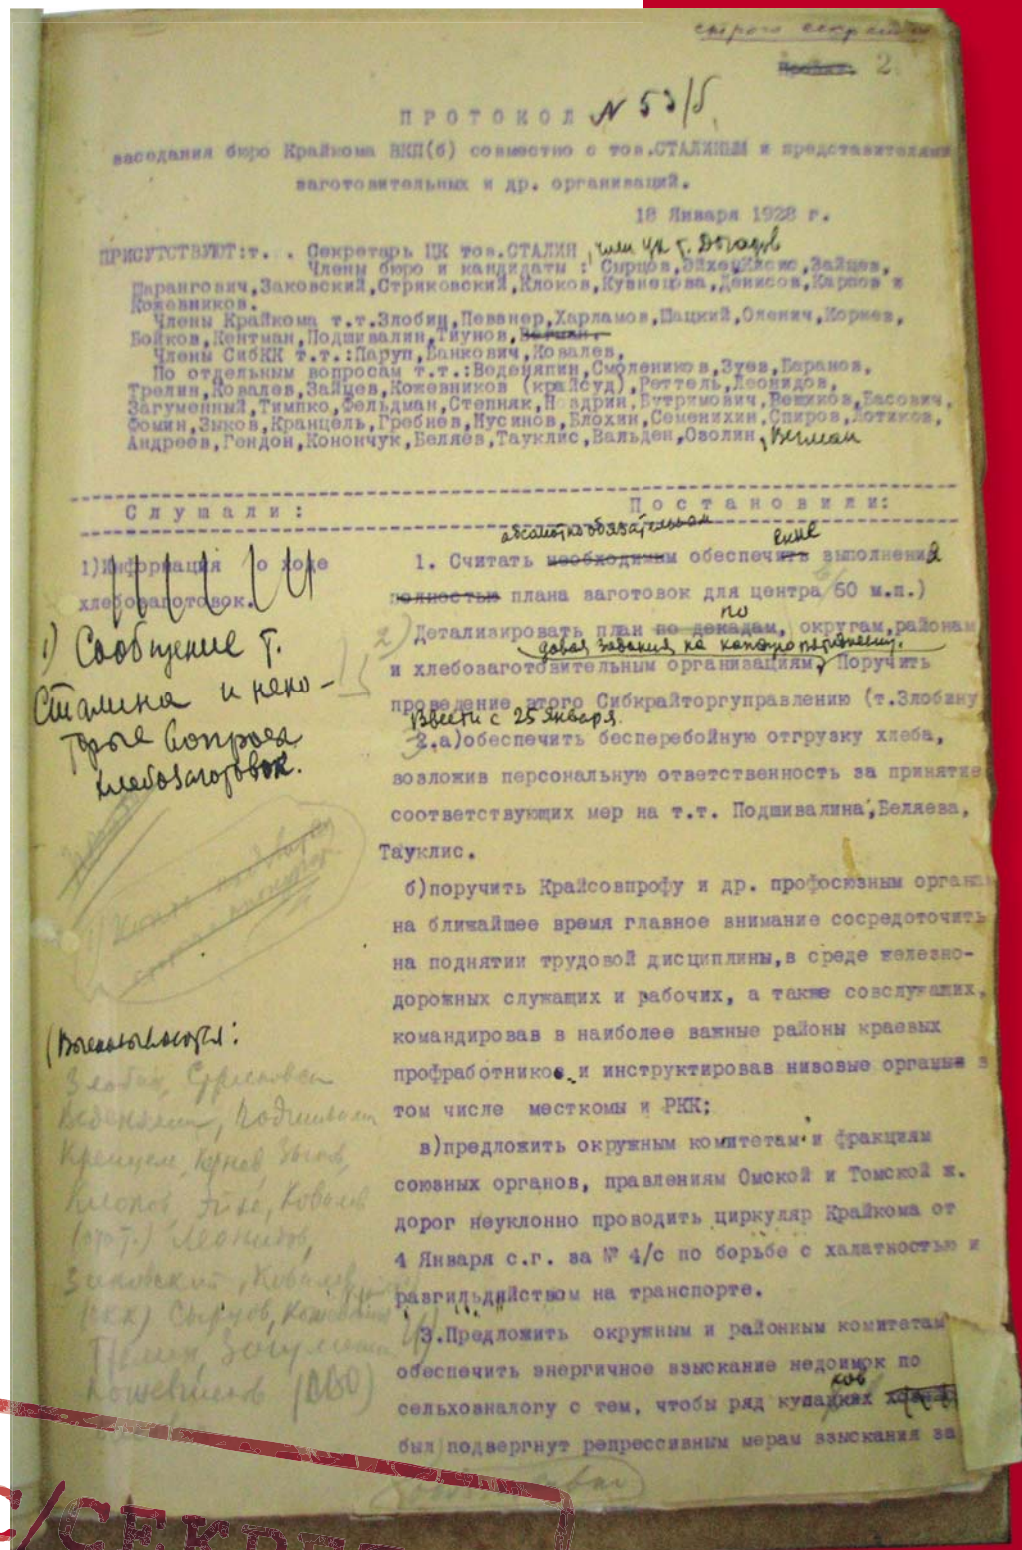 строго секретно
2
ПРОТОКОЛ № 53/б
заседания бюро Крайкома ВКП(б) совместно с тов.СТАЛИНЫМ и представителями
заготовительных и др. организаций.
18 Января 1928 г.
ПРИСУТСТВУЮТ:т. . Секретарь ЦК тов.СТАЛИН, член ЦК т. Догадов
Члены бюро и кандидаты : Сырцов,Эйхе,Кисис,Зайцев,
Шарангович,Заковский,Стриковский,Клоков,Кузнецова,Денисов,Карпов и
Кожевников.
Члены Крайкома т.т.Злобин,Певзнер,Харламов,Шацкий,Оленич,Корнев,
Бойков,Кентман,Подшивалин,Тиунов,
Члены СибКК т.т.:Паруп,Банкович,Ковалев,
По отдельным вопросам т.т.:Веденяпин,Смолеников,Зуев,Баранов,
Трелин,Ковалев,Зайцев,Кожевников (крайсуд),Реттель,Леонидов,
Загуменный,Тимпко,Фельдман,Степняк,Бутримович,Вещиков,Басович,
Фомин,Зыков,Кранцель,Гребнев,Мусинов,Блохин,Семенихин,Спиров,Лотиков,
Андреев,Гендон,Конончук,Беляев,Тауклис,Вальден,Озолин, Вегман
Слушали: Постановили:
1)Информация о ходе
хлебозаготовок.
1) Сообщение т.
Сталина и неко-
торые вопросы
хлебозаготовок.
(Высказываются:
Злобин,
Веденяпин, Подшивалин
Зыков,
Клоков, Эйхе, Ковалев
Леонидов,
Заковский, Ковалев
Сырцов,
Трелин, Загуменный
Кожевников
абсолютно обязательным ение
1. Считать необходимым обеспечить выполнения
полностью плана заготовок для центра 60 м.п.)
по
2) Детализировать план по декадам, округам,районам
давая задания на каждую пятидневку.
и хлебозаготовительным организациям, Поручить
проведение этого Сибкрайторгуправлению (т.Злобину
Ввести с 25 января.
2.а)обеспечить бесперебойную отгрузку хлеба,
возложив персональную ответственность за принятие
соответствующих мер на т.т. Подшивалина,Беляева,
Тауклис.
б)поручить Крайсовпрофу и др. профосюзным органам
на ближайшее время главное внимание сосредоточить
на поднятии трудовой дисциплины,в среде железно-
дорожных служащих и рабочих, а также совслужащих,
командировав в наиболее важные районы краевых
профработников, и инструктировав низовые органы в
том числе месткомы и РКК;
в)предложить окружным комитетам и фракциям
союзных органов, правлениям Омской и Томской ж.
дорог неуклонно проводить циркуляр Крайкома от
4 Января с.г. за № 4/с по борьбе с халатностью и
разгильдяйством на транспорте.
3.Предложить окружным и районным комитетам
обеспечить энергичное взыскание недоимок по
ков
сельхозналогу с тем, чтобы ряд кулацких
был подвергнут репрессивным мерам взыскания за